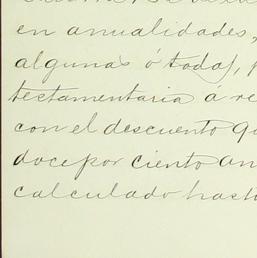 en anualidades,
algunas ó todas, p
testamentaria á re
con el descuento qu
doce por ciento an
calculado hasta